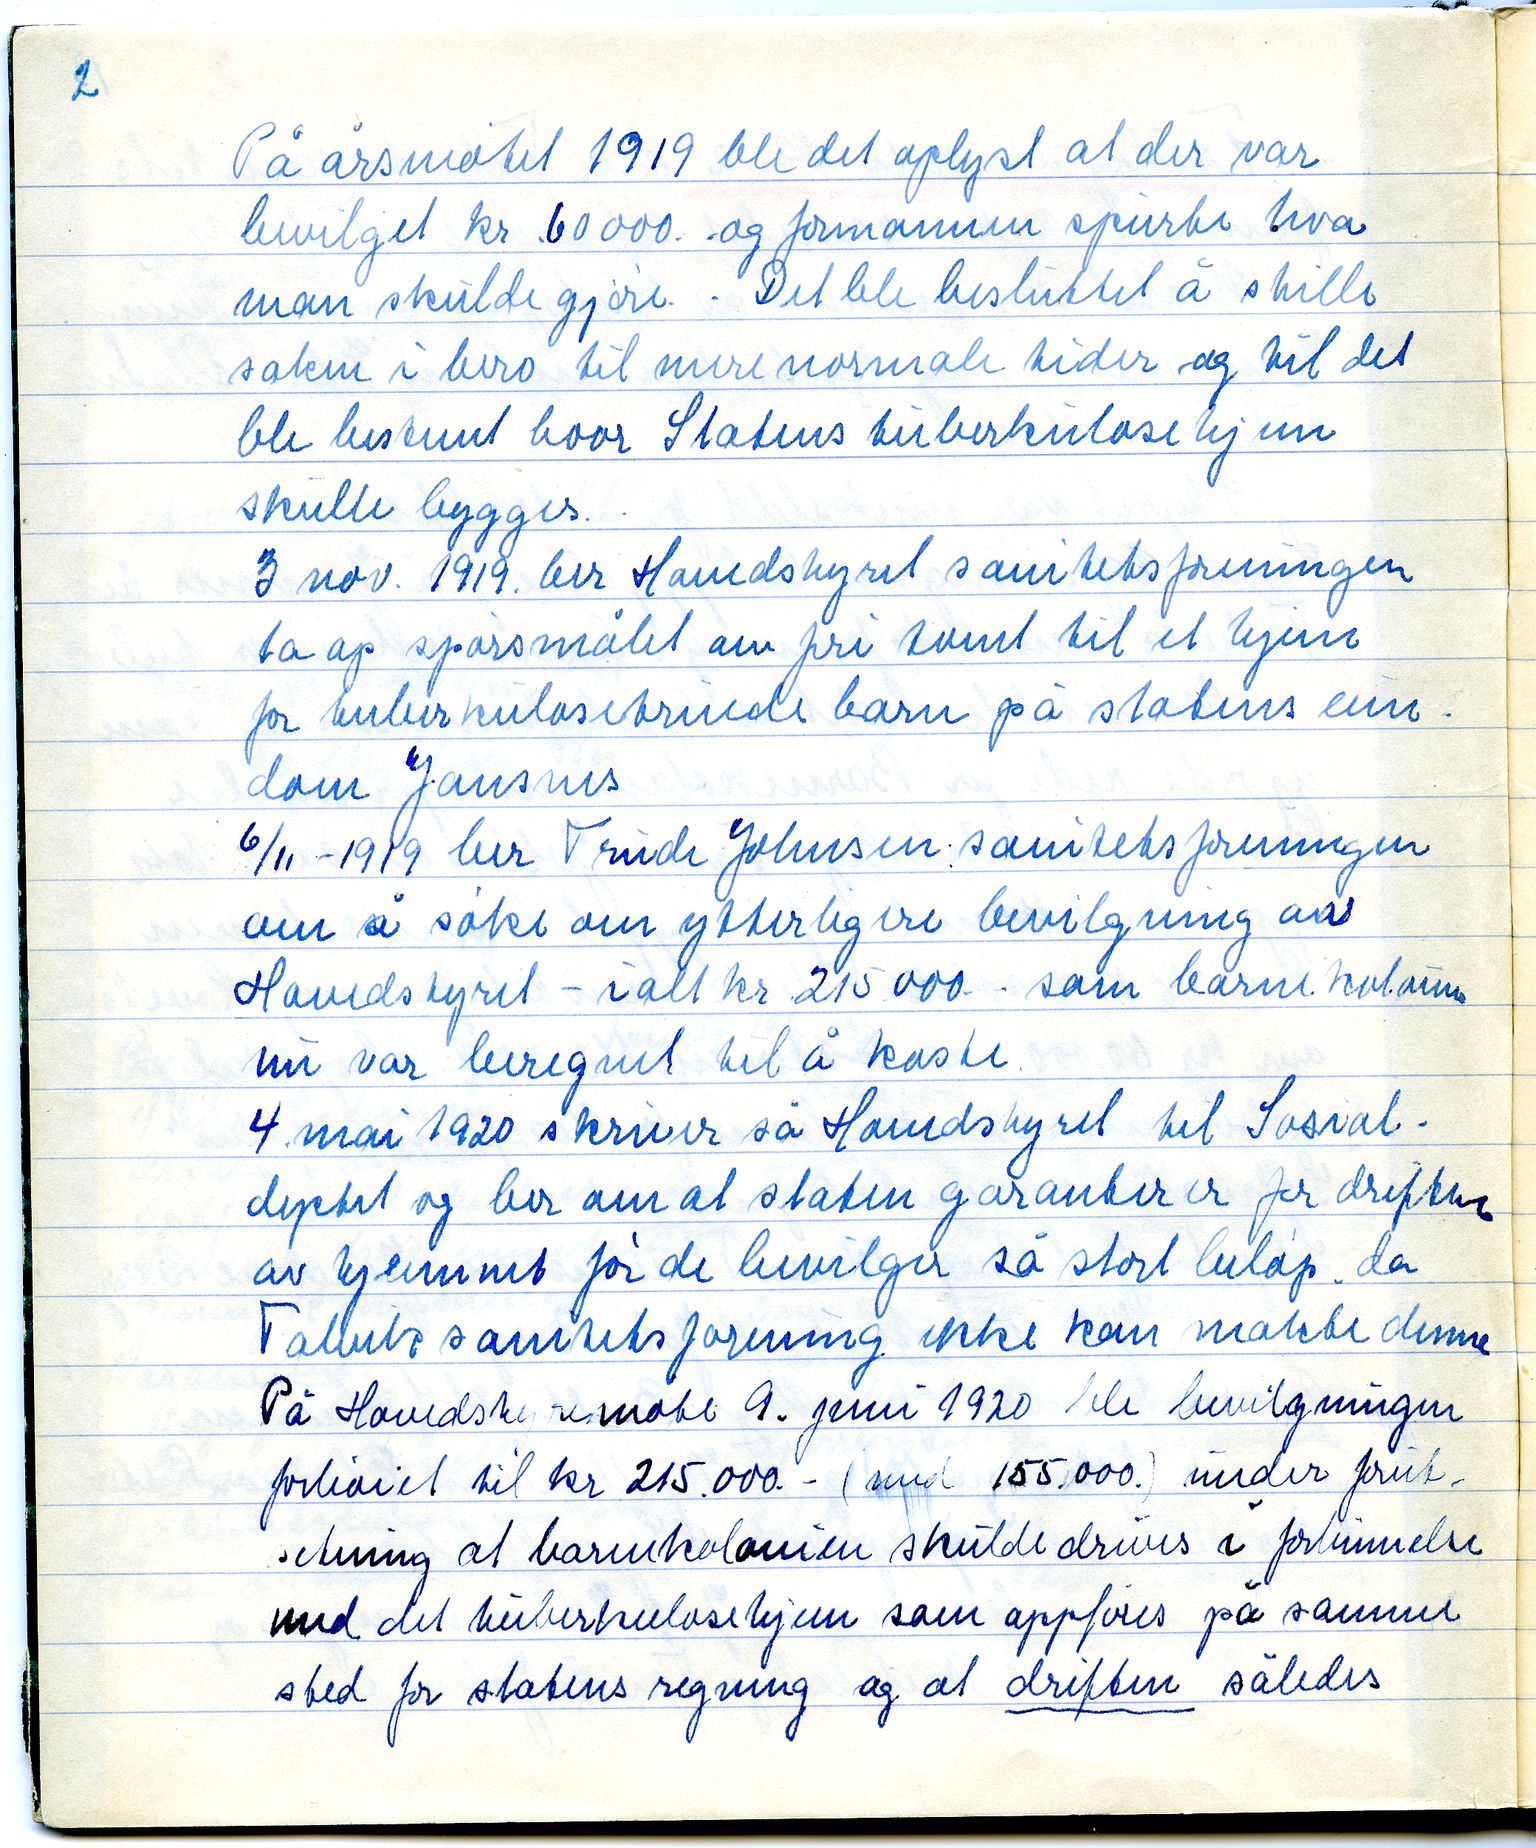 2
På årsmøtet 1919 ble det oplyst at der var
bevilget kr 60000.- og formannen spurte hva
man skulde gjøre. - Det ble besluttet å stille
saken i bero til mere normale tider og til det
ble bestemt hvor Statens tuberkulosehjem
skulle bygges.
3 nov. 1919. ber Hovedstyret sanitetsforeningen
ta op spørsmålet om fri tomt til et hjem
for tuberkulosetruede barn på statens eien-
dom Jansnes
6/11-1919 ber Frude Johnsen sanitetsforeningen
om å søke om ytterligere bevilgning av
Hovedstyret - i alt kr 215000.- som barnekolonien
nu var beregnet til å koste.
4 mai 1920 skriver så Hovedstyret til Sosial-
deptet og ber om at staten garanterer for driften
av hjemmet før de bevilger så stort beløp, da
Talvik sanitetsforening ikke kan makte denne
På Hovedstyremøte 9. juni 1920 ble bevilgningen
forhøiet til kr 215.000.- (med 155.000.) under forut-
setning at barnekolonien skulde drives i forbinnelse
med det tuberkulosehjem som oppføres på samme
sted for statens regning og at driften således